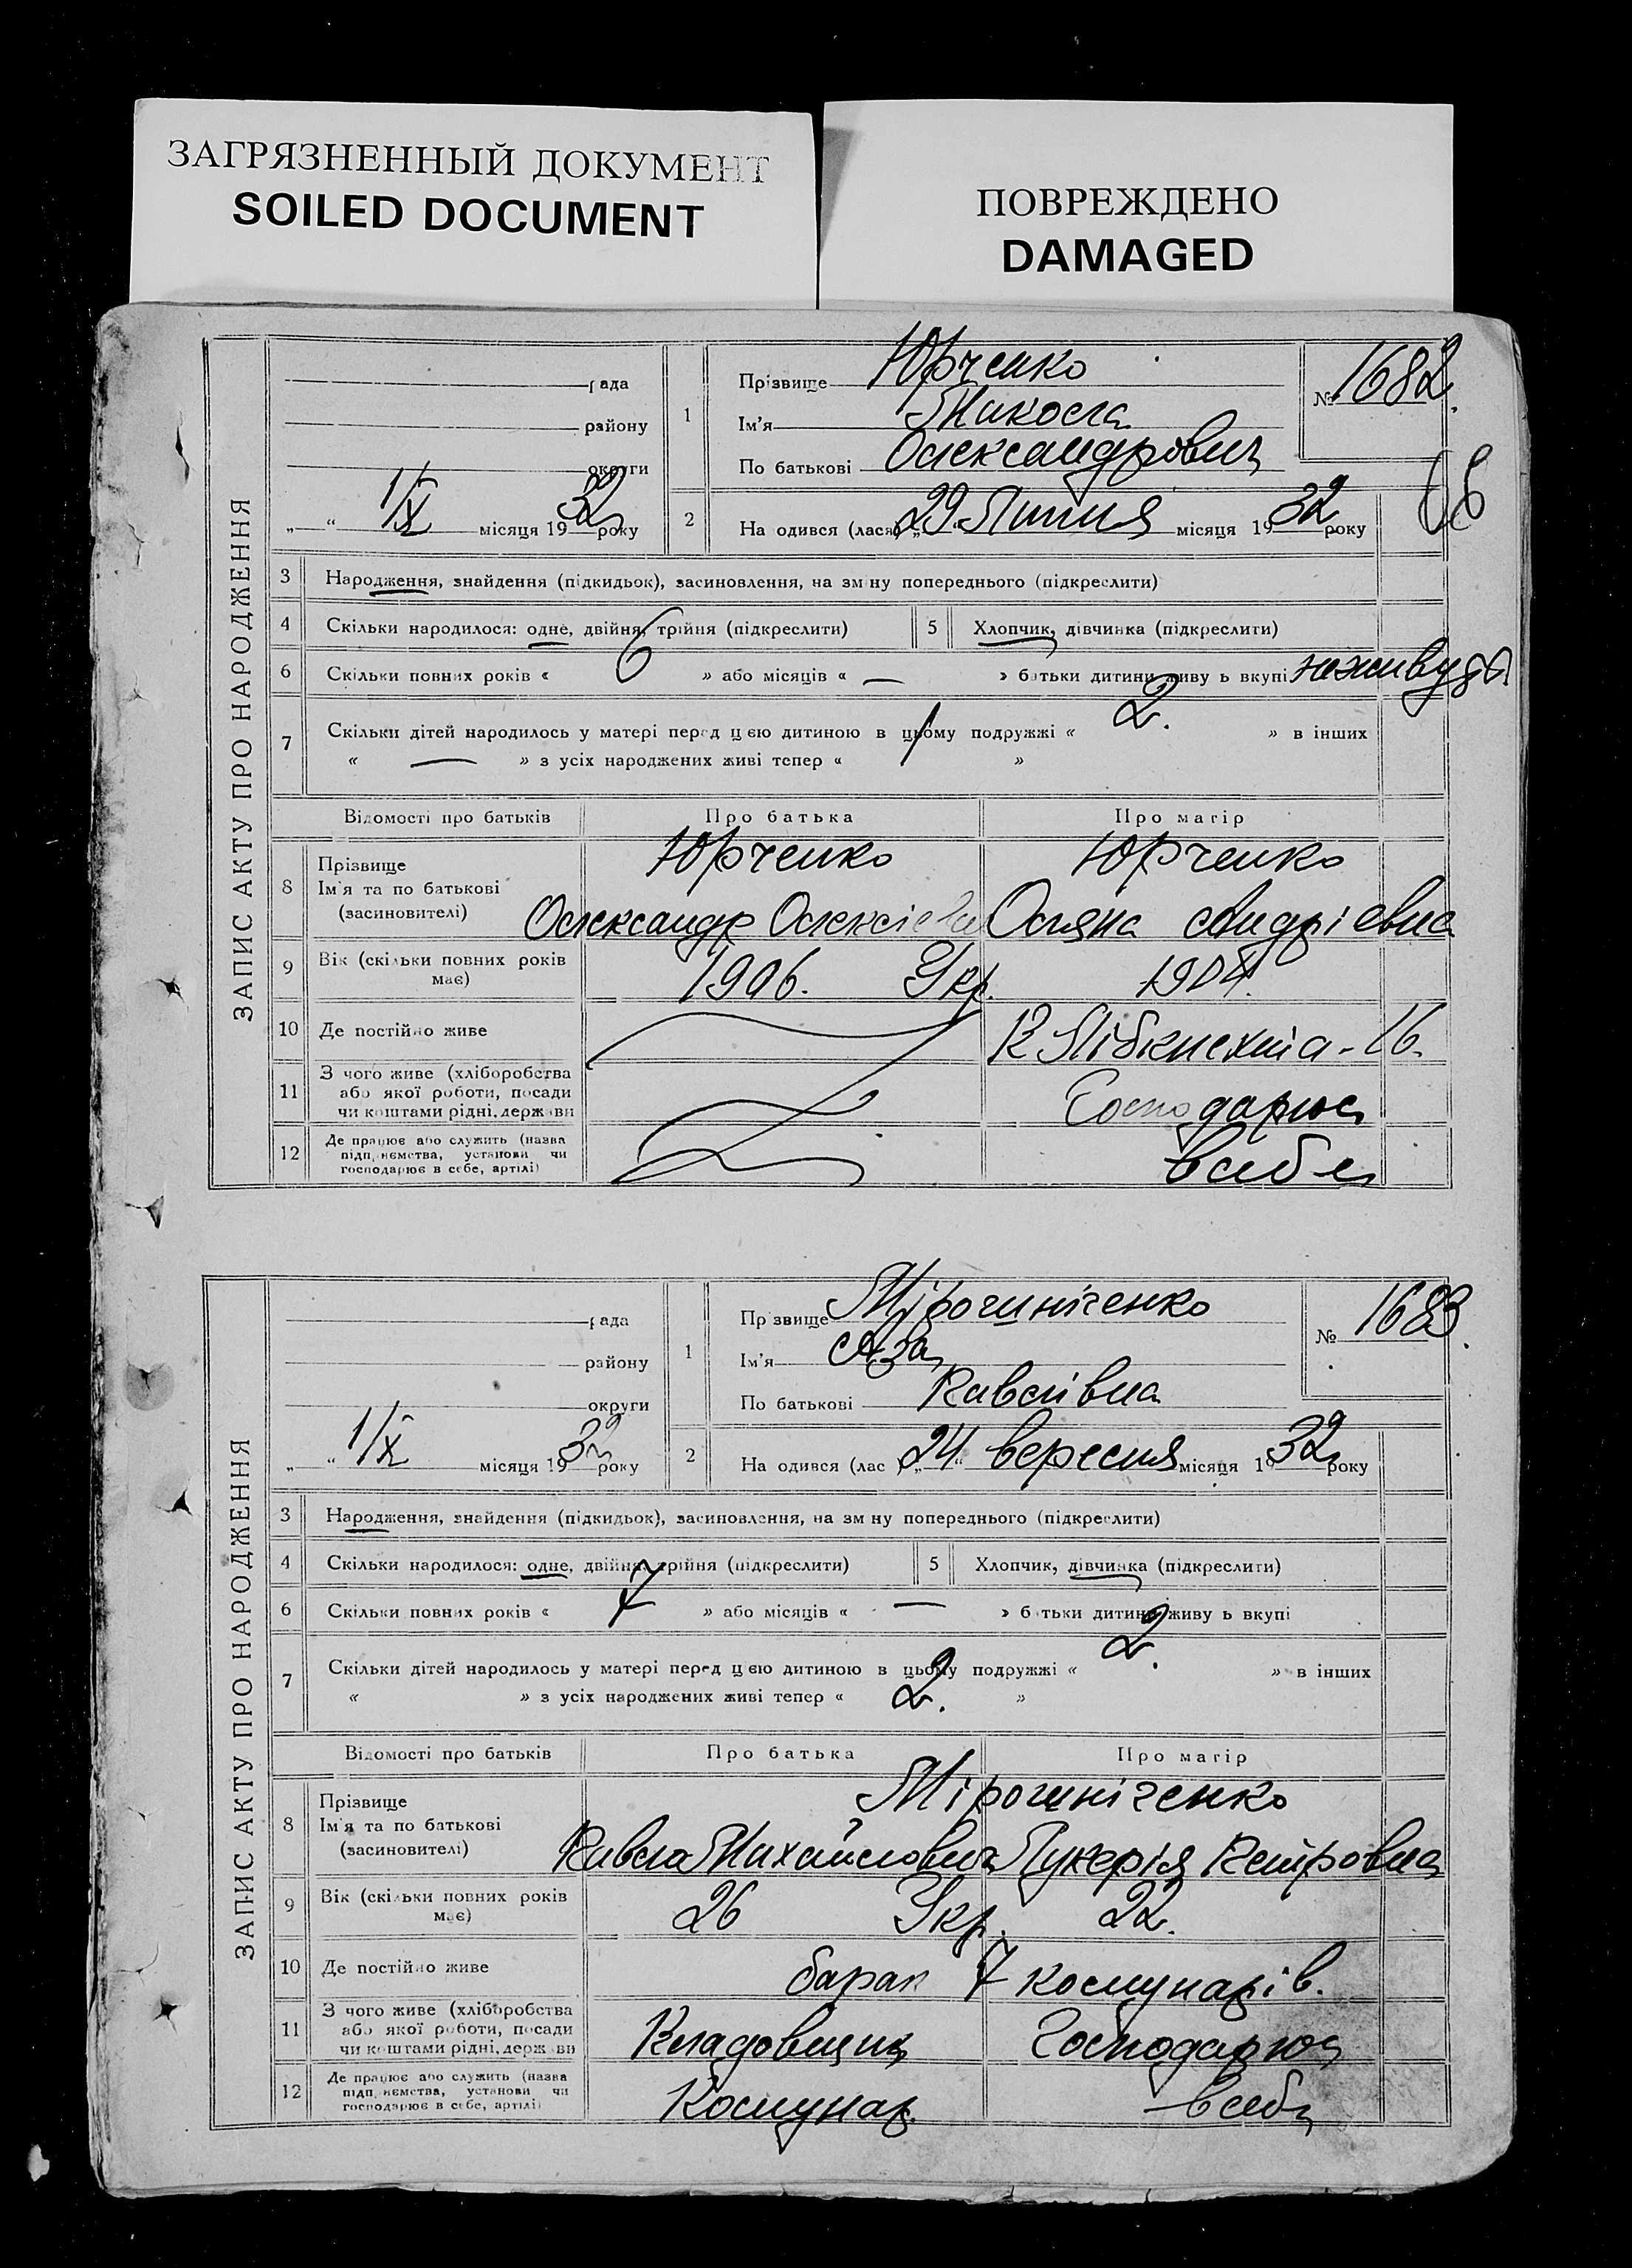 ЗАГРЯЗНЕННЫЙ ДОКУМЕНТ
SOILED DOCUMENT
ПОВРЕЖДЕНО
DAMAGED
ЗАПИС АКТУ ПРО НАРОДЖЕННЯ
рада
району
округи
„ “ 1/X місяця 1932 року
1
Прізвище Юрченко
Ім'я Микола
По батькові Олександрович
№ 1682.
2
На одився (лася) „29 Липня місяця 1932 року
3 Народження, знайдення (підкидьок), засиновлення, на зм ну попереднього (підкреслити)
4 Скільки народилося: одне, двійня, трійня (підкреслити)
5 Хлопчик, дівчинка (підкреслити)
6 Скільки повних років « 6 » або місяців « — » батьки дитини живу ь вкупі не живуть
7 Скільки дітей народилось у матері перед цією дитиною в цьому подружжі « 2. » в інших
« — » з усіх народжених живі тепер « 1 »
Відомості про батьків Про батька Про матір
8 Прізвище Юрченко Юрченко
Ім'я та по батькові
(засиновителі) Олександр Олексієв Оляна Андріевна
9 Вік (скільки повних років має) 1906. Укр. 1904.
10 Де постійно живе К Лібкнехта - 16.
11 З чого живе (хліборобства
або якої роботи, посади
чи коштами рідні, держави Господарює
12 Де працює або служить (назва
підп, иємства, установи чи
господарює в себе, артілі) в себе
ЗАПИС АКТУ ПРО НАРОДЖЕННЯ
рада
району
округи
„ “ 1/X місяця 1932 року
1
Пр звище Мірошніченко
Ім'я Аза
По батькові Павлівна
№ 1683.
2
На одився (лас ) „24“ вересня місяця 1 32 року
3 Народження, знайдення (підкидьок), засиновлення, на зм ну попереднього (підкреслити)
4 Скільки народилося: одне, двійня, трійня (підкреслити)
5 Хлопчик, дівчинка (підкреслити)
6 Скільки повних років « 7 » або місяців « — » б тьки дитини живу ь вкупі
7 Скільки дітей народилось у матері перед цією дитиною в цьому подружжі « 2. » в інших
« » з усіх народжених живі тепер « 2. »
Відомості про батьків Про батька Про матір
8 Прізвище Мірошніченко
Ім'я та по батькові
(засиновителі) Павло Михайлович Лукерія Петровна
9 Вік (скільки повних років має) 26 Укр. 22.
10 Де постійно живе барак 7 комунарів.
11 З чого живе (хліборобства
або якої роботи, посади
чи коштами рідні, держ ви Кладовщик Господарює
12 Де працює або служить (назва
підп, иємства, установи чи
господарює в себе, артілі) Комунар. в себе